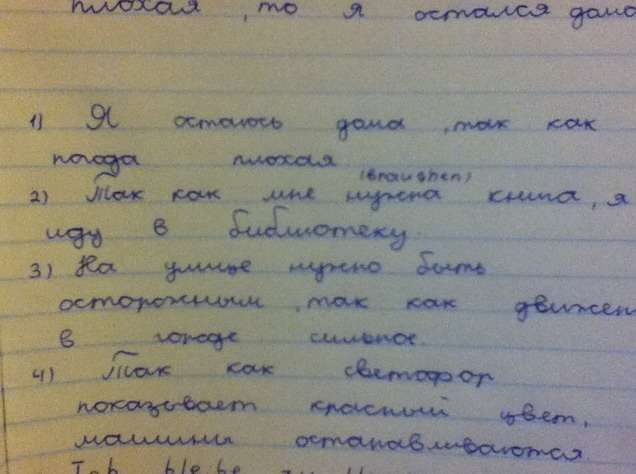 плохая, то я остался дома
1) Я остаюсь дома, так как
погода плохая
(brauchen)
2) Так как мне нужна книга, я
иду в библиотеку.
3) На улице нужно быть
осторожным, так как движен
в городе сильное.
4) Так как светофор
показывает красный цвет,
машины останавливаются.
Ich bleibe zu